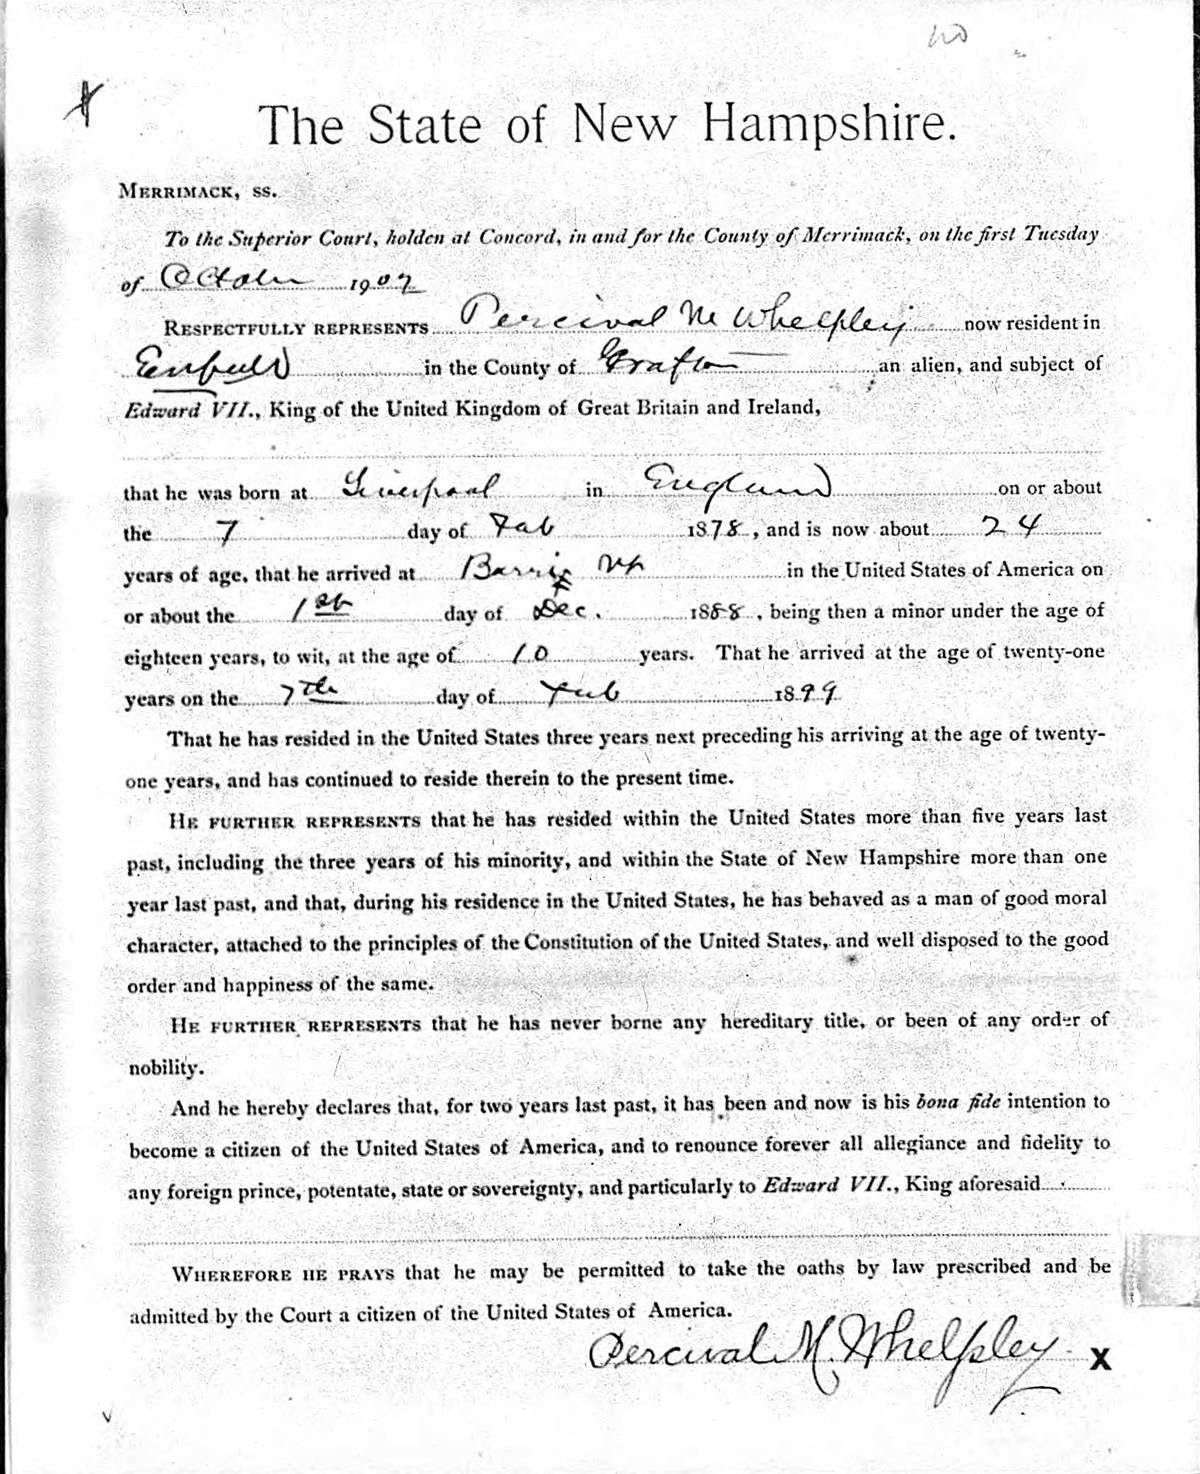 The State of New Hampshire.
MERRIMACK, SS.
To the Superior Court, holden at Concord, in and for the County of Merrimack, on the first Tuesday
of October 1902
RESPECTFULLY REPRESENTS Percival M Whelpley now resident in
Enfield in the County of Grafton an alien, and subject of
Edward VII., King of the United Kingdom of Great Britain and Ireland,
that he was born at Liverpool in England on or about
the 7 day of Feb 1878, and is now about 24
years of age, that he arrived at Barrie in the United States of America on
or about the 1st day of Dec. 1888, being then a minor under the age of
eighteen years, to wit, at the age of 10 years. That he arrived at the age of twenty-one
years on the 7th day of Feb 1899
That he has resided in the United States three years next preceding his arriving at the age of twenty-
one years, and has continued to reside therein to the present time.
HE FURTHER REPRESENTS that he has resided within the United States more than five years last
past, including the three years of his minority, and within the State of New Hampshire more than one
year last past, and that, during his residence in the United States, he has behaved as a man of good moral
character, attached to the principles of the Constitution of the United States, and well disposed to the good
order and happiness of the same.
HE FURTHER REPRESENTS that he has never borne any hereditary title, or been of any order of
nobility.
And he hereby declares that, for two years last past, it has been and now is his bona fide intention to
become a citizen of the United States of America, and to renounce forever all allegiance and fidelity to
any foreign prince, potentate, state or sovereignty, and particularly to Edward VII., King aforesaid
WHEREFORE HE PRAYS that he may be permitted to take the oaths by law prescribed and be
admitted by the Court a citizen of the United States of America.
Percival M. Whelpley X